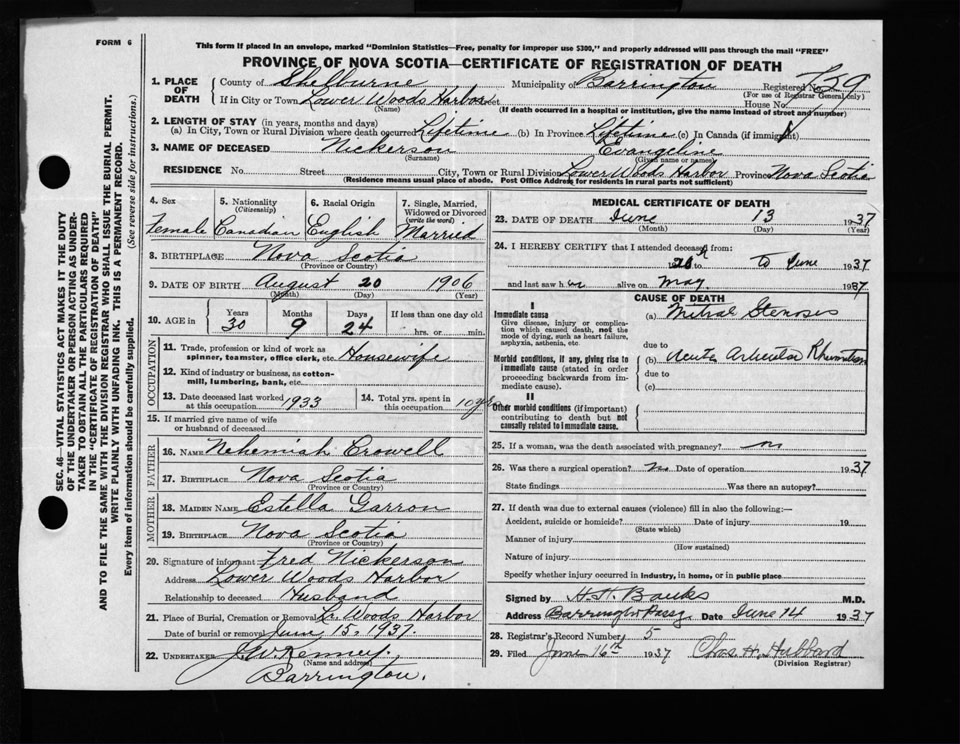 FORM 6
This form if placed in an envelope, marked "Dominion Statistics—Free, penalty for improper use $300," and properly addressed will pass through the mail "FREE"
PROVINCE OF NOVA SCOTIA—CERTIFICATE OF REGISTRATION OF DEATH
1. PLACE OF DEATH
County of Shelburne Municipality of Barrington Registered No. 739
(For use of Registrar General only)
If in City or Town Lower Woods Harbor Street House No.
(Name) (If death occurred in a hospital or institution, give the name instead of street and number)
2. LENGTH OF STAY (in years, months and days)
(a) In City, Town or Rural Division where death occurred Lifetime (b) In Province Lifetime (c) In Canada (if immigrant)
3. NAME OF DECEASED Nickerson Evangeline
(Surname) (Given name or names)
RESIDENCE No. Street City, Town or Rural Division Lower Woods Harbor Province Nova Scotia
(Residence means usual place of abode. Post Office Address for residents in rural parts not sufficient)
SEC. 46—VITAL STATISTICS ACT MAKES IT THE DUTY
OF THE UNDERTAKER OR PERSON ACTING AS UNDER-
TAKER TO OBTAIN ALL THE PARTICULARS REQUIRED
IN THE "CERTIFICATE OF REGISTRATION OF DEATH"
AND TO FILE THE SAME WITH THE DIVISION REGISTRAR WHO SHALL ISSUE THE BURIAL PERMIT.
WRITE PLAINLY WITH UNFADING INK. THIS IS A PERMANENT RECORD.
Every item of information should be carefully supplied. (See reverse side for instructions.)
4. Sex
Female
5. Nationality
(Citizenship)
Canadian
6. Racial Origin
English
7. Single, Married,
Widowed or Divorced
(write the word)
Married
8. BIRTHPLACE Nova Scotia
(Province or Country)
9. DATE OF BIRTH August 20 1906
(Month) (Day) (Year)
10. AGE in Years Months Days If less than one day old
30 9 24 hrs. or min.
OCCUPATION
11. Trade, profession or kind of work as
spinner, teamster, office clerk, etc. Housewife
12. Kind of industry or business, as cotton-
mill, lumbering, bank, etc.
13. Date deceased last worked
at this occupation 1933
14. Total yrs. spent in
this occupation 10 yrs
15. If married give name of wife
or husband of deceased
FATHER
16. NAME Nehemiah Crowell
17. BIRTHPLACE Nova Scotia
(Province or Country)
MOTHER
18. MAIDEN NAME Estella Garron
19. BIRTHPLACE Nova Scotia
(Province or Country)
20. Signature of informant Fred Nickerson
Address Lower Woods Harbor
Relationship to deceased Husband
21. Place of Burial, Cremation or Removal Lr. Woods Harbor
Date of burial or removal June 15, 1937.
22. UNDERTAKER J.W. Kenney,
(Name and address)
Barrington.
MEDICAL CERTIFICATE OF DEATH
23. DATE OF DEATH June 13 1937
(Month) (Day) (Year)
24. I HEREBY CERTIFY that I attended deceased from:
to June 1937
and last saw her alive on May 1937
CAUSE OF DEATH
I
Immediate cause
Give disease, injury or complica-
tion which caused death, not the
mode of dying, such as heart failure,
asphyxia, asthenia, etc.
(a) Mitral Stenosis
due to
Morbid conditions, if any, giving rise to
immediate cause (stated in order
proceeding backwards from im-
mediate cause).
(b) Acute Articular Rheumatism
due to
(c)
II
Other morbid conditions (if important)
contributing to death but not
causally related to immediate cause.
25. If a woman, was the death associated with pregnancy? no
26. Was there a surgical operation? no Date of operation 1937
State findings Was there an autopsy?
27. If death was due to external causes (violence) fill in also the following:—
Accident, suicide or homicide? Date of injury 19
(State which)
Manner of injury
(How sustained)
Nature of injury
Specify whether injury occurred in industry, in home, or in public place
Signed by H.H. Banks M.D.
Address Barrington Passg. Date June 14 1937
28. Registrar's Record Number 5
29. Filed June 16th 1937 Chas. H. Hubbard
(Division Registrar)